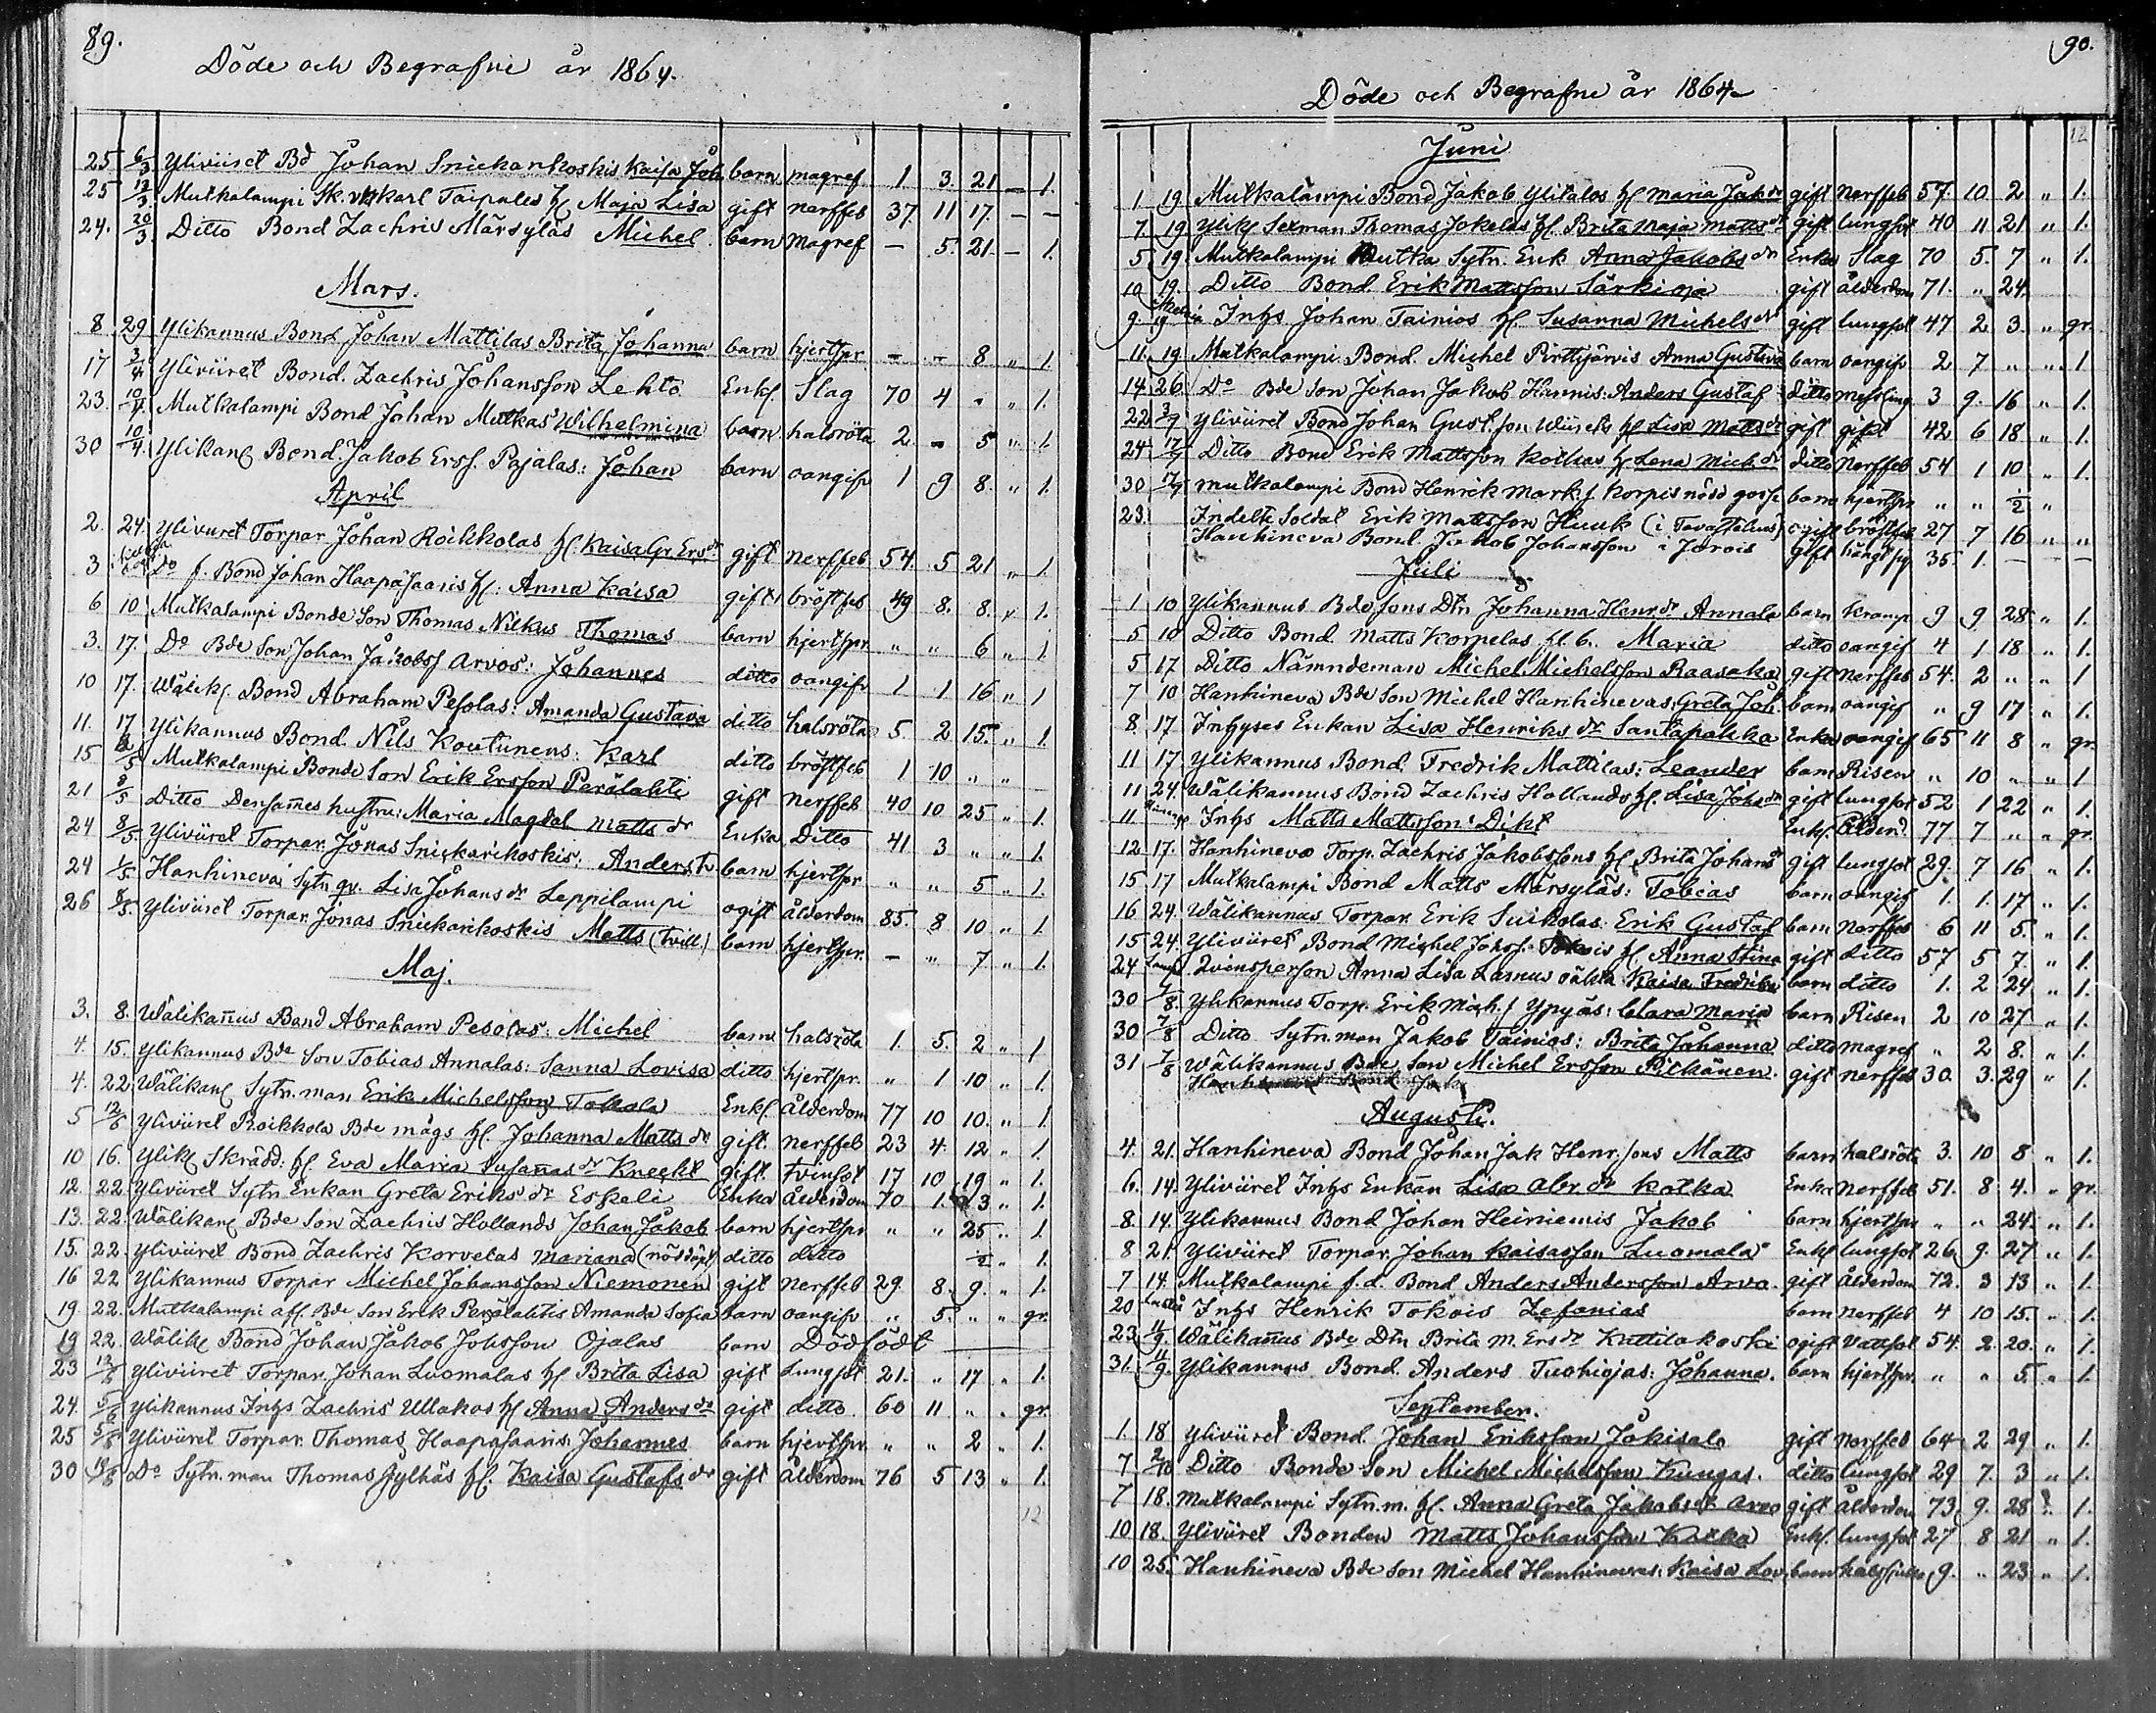 89.
Döde och Begrafne år 1864.
25 6/3 Yliviiret Bd Johan Snickarikoskis Kaisa Joh. barn magref 1 3. 21 – 1.
25 13/3 Mutkalampi Sk. Karl Taipales hs Maja Lisa gift nerffeb 37 11 17. – –
24. 20/3 Ditto Bond Zachris Märsyläs Michel barn magref – 5. 21 – 1.
Mars.
8 29 Ylikannus Bond Johan Mattilas Brita Johanna barn hjertspr – – 8 „ 1.
17 3/4 Yliviiret Bond. Zachris Johansson Lehto Enkl. Slag 70 4 „ „ 1.
23. 10/4 Mutkalampi Bond Johan Mutkas Wilhelmina barn halsröta 2. – 5 „ 1
30 10/4. Ylikans Bond. Jakob Erss. Pajalas: Johan barn oangifv 1 9 8. „ 1.
April
2. 24. Yliviiret Torpar Johan Roikkolas hs. Kaisa Gr. Ersdr gift nerffeb 54. 5 21 „ 1.
3 Do f. Bond Johan Haapasaaris hs: Anna Kaisa gift bröstfeb 49 8. 8. „ 1.
6 10 Mutkalampi Bonde Son Thomas Nikus Thomas barn hjertspr „ „ 6 „ 1
3. 17. Do Bde Son Johan Jakobss Arvos: Johannes ditto oangifv 1 1 16 „ 1
10 17. Wälik. Bond Abraham Pesolas: Amanda Gustava ditto halsröta 5. 2 15. „ 1.
11. 17 Ylikannus Bond. Nils Koutunens: Karl ditto bröstfeb 1 10 „ „
15 8/5 Mutkalampi Bonde Son Erik Ersson Perälahti gift nerffeb 40 10 25 „ 1.
21 8/5 Ditto Densames hustru: Maria Magdal Matts dr Enka Ditto 41 3 „ „ 1.
24 8/5. Ylivüret Torpar. Jonas Snickarikoskis: Anders tv barn hjertspr „ „ 5 „ 1.
24 1/5 Hanhineva Sytn gv. Lisa Johans dr Leppilampi ogift ålderdom 85. 8 10 „ 1.
26 8/5. Ylivüret Torpar. Jonas Snickarikoskis Matts (tvill.) barn hjertspr. – „ 7 „ 1.
Maj.
3. 8. Wälikan̄us Bond Abraham Pesolas: Michel barn halsröta 1. 5. 2 „ 1
4. 15. Ylikannus Bde Son Tobias Annalas: Sanna Lovisa ditto hjertspr. „ 1 10 „ 1.
4. 22. Wälikans Sytn. man Erik Michelsson Tokola Enkl. ålderdom 77 10 10. „ 1.
5 12/6 Ylivüret Roikkola Bde mågs hs. Johanna Matts dr gift. nerffeb 23 4. 12 „ 1.
10 16. Ylik. Skrädd. hs. Eva Maria Susan̄as dr Knecht gift tvinsot 17 10 19 „ 1.
12. 22 Ylivüret Sytn Enkan Greta Eriks dr Eskeli Enka ålderdom 70 1. 3 „ 1.
13. 22. Wälikans Bde Son Zachris Hollands Johan Jakob barn hjertspr „ „ 25 „ 1.
15. 22. Ylivüret Bond Zachris Korvelas Mariana (nöddöpt) ditto ditto 1/2 „ 1.
16 22 Ylikannus Torpar Michel Johansson Niemonen gift nerffeb 29. 8. 9. „ 1.
19. 22. Mutkalampi afl. Bde Son Erik Perälahtis Amanda Sofia barn oangifv „ 5. „ „ gr.
19 22. Wälik. Bond Johan Jakob Johsson Ojalas barn Dödfödt
23 12/6 Ylivüret Torpar. Johan Luomalas hs Brita Lisa gift Lungsot 21. „ 17 „ 1.
24. 5/6 Ylikannus Inhs Zachris Ullakas hs Anna Anders dr gift ditto. 60 11 „ „ gr.
25 5/6 Ylivüret Torpar. Thomas Haapasaaris: Johannes barn hjertspr. „ „ 2 „ 1.
30 19/6 Do Sytn. man Thomas Jylhäs hs. Kaisa Gustafs dr gift ålderdom 76 5 13 „ 1.
12
90.
Döde och Begrafne år 1864
12
Juni
1 19. Mutkalampi Bond Jakob Ylitalos hs Maria Jak dr gift nerffeb 57. 10 2 „ 1.
7. 19 Ylik. Sexman Thomas Jokelas hs. Brita Maja Matts dr gift lungsot 40 11 21 „ 1.
5 19. Mutkalampi Mutka Sytn. Enk Anna Jakobs dr Enka Slag 70 5. 7 „ 1.
10 19. Ditto Bond. Erik Mattsson Särkioja gift ålderdom 71. „ 24.
9 19 Inhs Johan Tainios hs. Susanna Michels dr gift lungsot 47 2 3. „ gr.
11. 19 Mutkalampi. Bond. Michel Pirttijärvis Anna Gustava barn oangifv 2 7 „ „ 1
14. 26. Do Bde Son Johan Jakob Hannis: Anders Gustaf ditto messling. 3 9. 16 „ 1.
22 3/7 Ylivüret Bond Johan Gust. son Wiireks hs Lisa Matts dr gift gikt 42 6 18 „ 1.
24 17/7 Ditto Bond Erik Mattsson Kotkas hs Lena Mich dr ditto Nerffeb 54 1 10 „ 1.
30 Mutkalampi Bond Henrik Mark.s Korpis nöd gosse barn hjertspr „ „ 1/2 „
23. Indelte Soldat Erik Mattsson Huuk (i Tavastehus) ogift bröstfeb. 27 7 16 „ „
Hanhineva Bond. Jakob Johansson i Jorois gift 35. 1. – –
Juli
1 10 Ylikannus Bde Sons Dtn Johanna Henr. dr Annala barn kramp 9 9 28 „ 1.
5 10 Ditto Bond. Matts Korpelas fl. b. Maria ditto oangif 4 1 18 „ 1.
5 17 Ditto Nämndeman Michel Michelsson Raasaka gift nerffeb 54. 2 „ „ 1
7 10 Hanhineva Bde Son Michel Hanhinevas, Greta Joh. barn oangif „ 9 17 „ 1.
8 17 Inhyses Enkan Lisa Henriks dr Santapakka Enka oangif 65 11 8 „ gr.
11 17. Ylikannus Bond. Fredrik Mattilas: Leander barn Risen „ 10 „ „ 1
11 24. Wälikannus Bond Zachris Hollands hs. Lisa Johs dr gift lungsot 52 1 22 „ 1.
11 Inhs Matts Mattsson Dikt Enkl. ålderd. 77 7 „ „ gr.
12 17. Hanhineva Torp. Zachris Jakobssons hs Brita Johans dr gift lungsot 29. 7 16 „ 1.
15 17 Mutkalampi Bond Matts Märsyläs: Tobias barn oangif 1. 1. 17 „ 1.
16 24. Wälikannus Torpar. Erik Suikolas Erik Gustaf barn nerffeb 6 11 5. „ 1.
15 24. Ylivüret Bond Michel Johss. Tokois hs Anna Stina gift ditto 57 5 7. „ 1.
24 Qvinsperson Anna Lisa Lassus oäkta Kaisa Fredrika barn ditto 1. 2 24 „ 1.
30 7/8. Ylikannus Torp. Erik Mich.s Ypyäs: Clara Maria barn Risen 2 10 27 „ 1.
30 7/8 Ditto Sytn. man Jakob Tainios: Brita Johanna ditto magref „ 2 8. „ 1.
31 7/8 Wälikannus Bde Son Michel Ersson Pitkänen. gift nerffeb 30. 3. 29 „ 1.
Augusti.
4. 21. Hanhineva Bond Johan Jak Henr. sons Matts barn halsröta 3. 10 8 „ 1.
6. 14. Ylivüret Inhs Enkan Lisa Abr. dr Kotka Enka nerffeb 51. 8 4. „ gr.
8. 14. Ylikannus Bond Johan Heiniemis Jakob barn hjertspr „ „ 24. „ 1.
8 21 Ylivüret Torpar. Johan Kaisasson Luomala Enkl lungsot 26 9. 27 „ 1.
7 14. Mutkalampi f.d. Bond Anders Andersson Arvo. gift ålderdom 72. 3 13 „ 1.
20 Inhs Henrik Tokois Zefanias barn nerffeb 4 10 15. „ 1.
23 11/9. Wälikan̄us Bde Dtn Brita M. Ers dr Kuttilakoski ogift Vattsot 54. 2. 20. „ 1.
31. 11/9. Ylikannus Bond. Anders Tuohiojas: Johanna. barn hjertspr. „ „ 5. „ 1.
September.
1. 18 Ylivüret Bond. Johan Eriksson Jokisalo gift nerffeb 64 2 29 „ 1.
7 2/10 Ditto Bonde Son Michel Michelsson Kungas. ditto lungsot 29 7. 3 „ 1.
7 18. Mutkalampi Sytn. m. hs. Anna Greta Jakobs dr Arvo gift ålderdom 73 9. 28 „ 1.
10 18. Ylivüret Bonden Matts Johansson Kotka Enkl. lungsot 27 8 21 „ 1.
10 25. Hanhineva Bde Son Michel Hanhinevas: Kaisa Lov. barn 9. „ 23 „ 1.